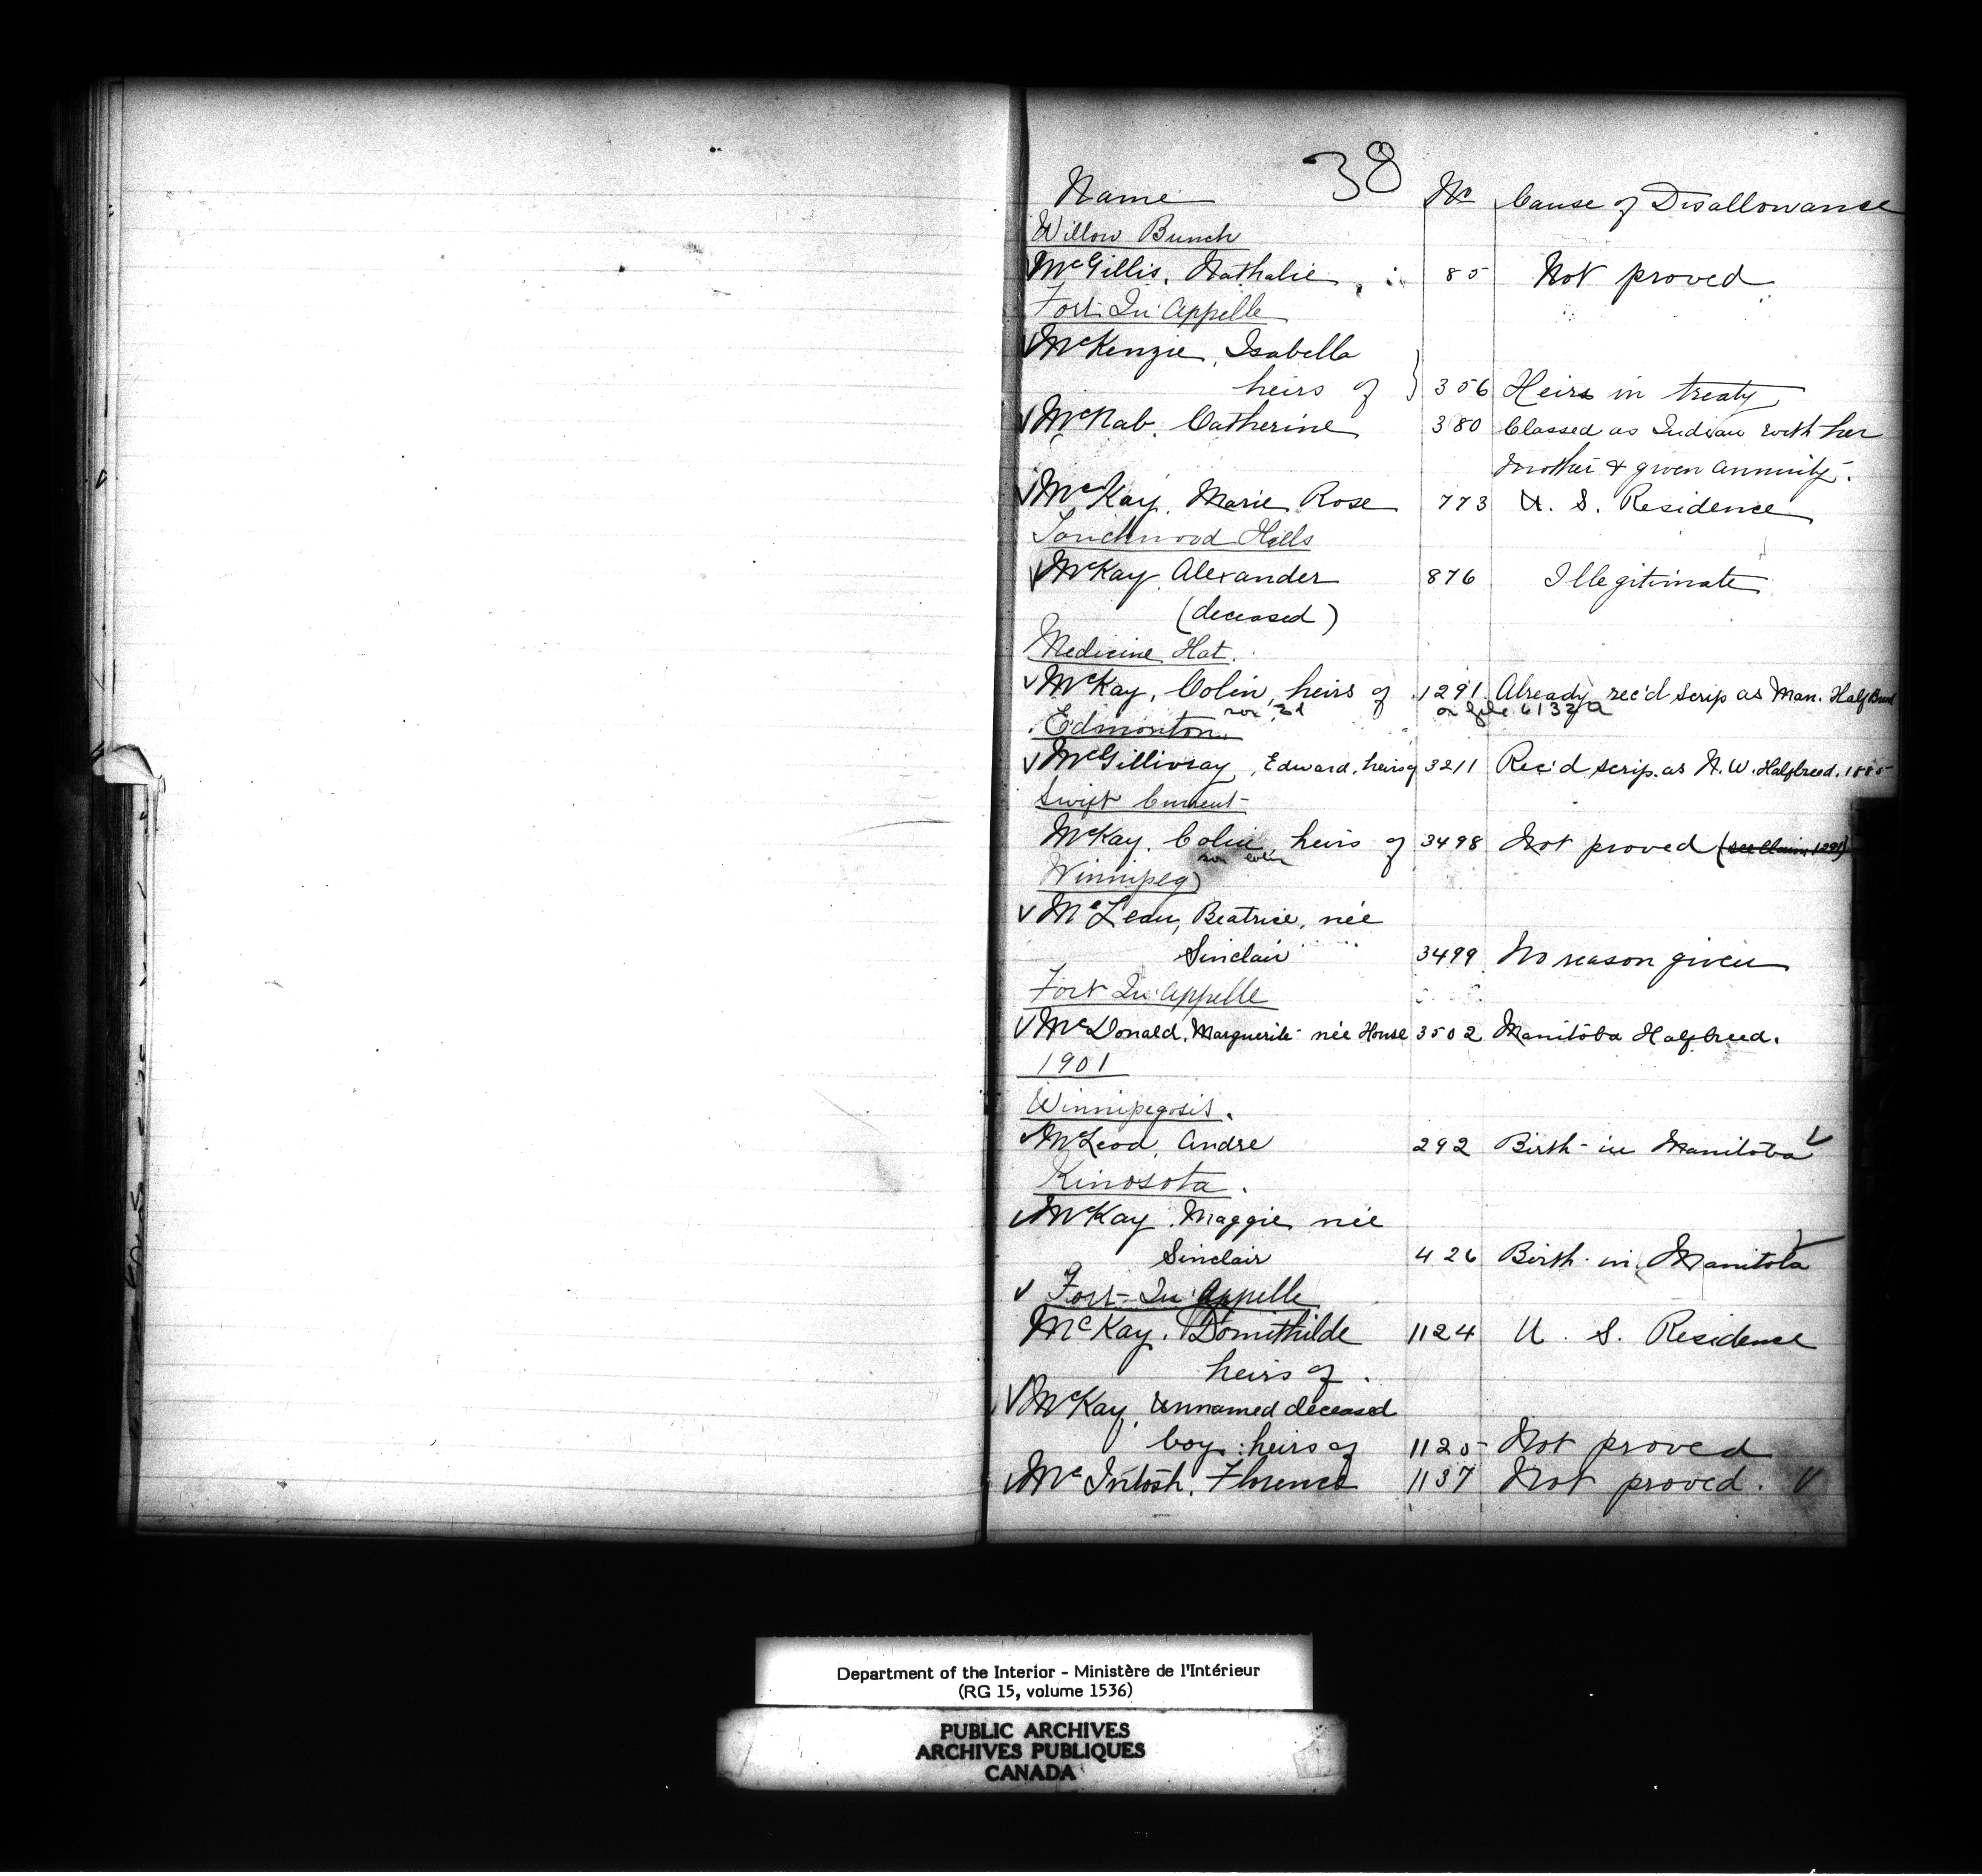 38
Name No Cause of Disallowance
Willow Bunch
McGillis, Nathalie 85 Not proved
Fort Qu'Appelle
McKenzie, Isabella
heirs of } 356 Heirs in treaty
McNab, Catherine 380 Classed as Indian with her
mother & given annuity.
McKay, Marie Rose 773 U. S. Residence
Touchwood Hills
McKay, Alexander 876 Illegitimate
(deceased)
Medicine Hat.
McKay, Colin, heirs of 1291 Already rec'd scrip as Man. Half Breed
Edmonton
McGillivray, Edward, heirs of 3211 Rec'd scrip as N.W. Halfbreed, 1885
Swift Current
McKay, Colin, heirs of 3498 Not proved (see Claim 1291)
Winnipeg
McLean, Beatrice, née
Sinclair 3499 No reason given
Fort Qu'Appelle
McDonald, Marguerite née House 3502 Manitoba Halfbreed.
1901
Winnipegosis.
McLeod, Andre 292 Birth in Manitoba
Kinosota.
McKay, Maggie, née
Sinclair 426 Birth in Manitoba
Fort Qu'Appelle
McKay, Domithilde 1124 U. S. Residence
heirs of.
McKay, Unnamed deceased
boy: heirs of 1125 Not proved
McIntosh, Florence 1137 Not proved.
Department of the Interior - Ministère de l'Intérieur
(RG 15, volume 1536)
PUBLIC ARCHIVES
ARCHIVES PUBLIQUES
CANADA